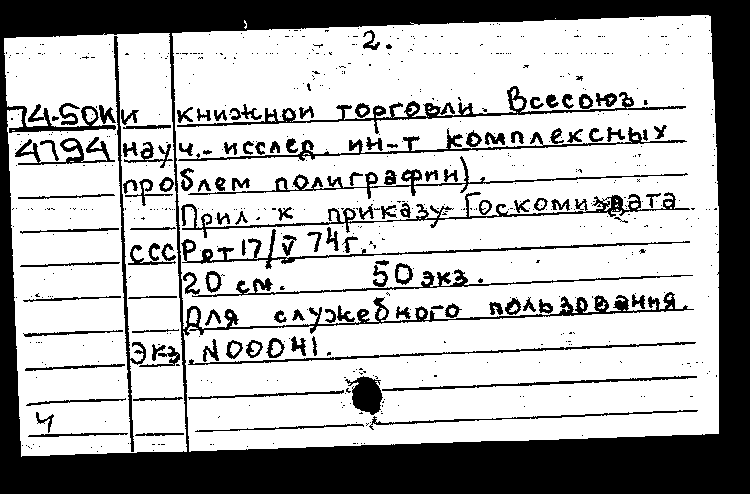 2.
74-50К и книжной торговли. Всесоюз.
4794 науч.-исслед. ин-т комплексных
проблем полиграфии).
Прил. к приказу Госкомиздата
СССР от 17/V 74г.
20 см. 50 экз.
Для служебного пользования.
Экз. N00041.
Ч